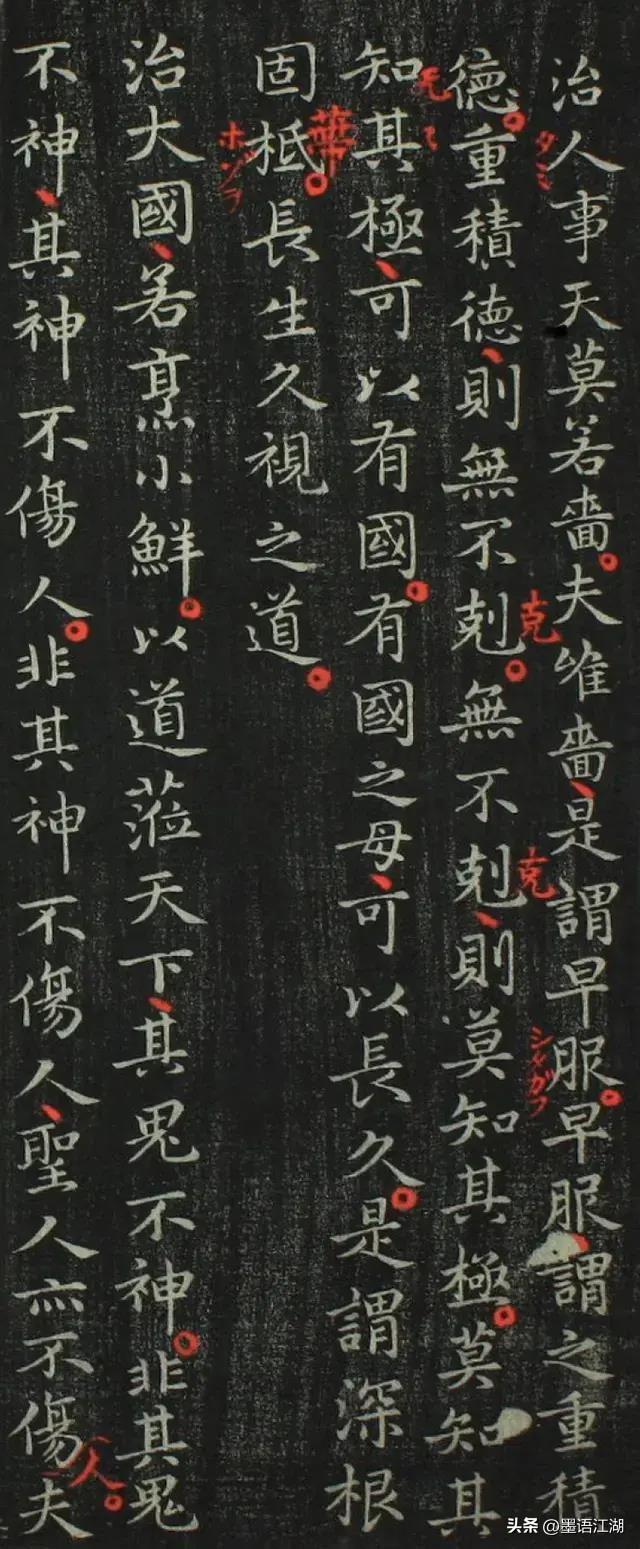 治人事天莫若嗇夫唯嗇是謂早服早服謂之重積
タミ
克
克
德重積德則無不剋無不剋則莫知其極莫知其
知其極可以有國有國之母可以長久是謂深根
固柢長生久視之道
治大國若烹小鮮以道蒞天下其鬼不神非其鬼
不神其神不傷人非其神不傷人聖人亦不傷夫
人
头条 @墨语江湖